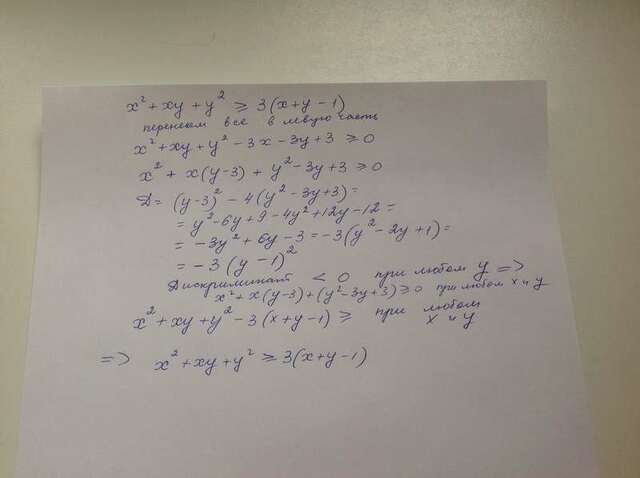 x² + xy + y² ⩾ 3(x+y-1)
перенесем все в левую часть
x² + xy + y² - 3x - 3y + 3 ⩾ 0
x² + x(y-3) + y² - 3y + 3 ⩾ 0
Д = (y-3)² - 4(y² - 3y + 3) =
= y² - 6y + 9 - 4y² + 12y - 12 =
= -3y² + 6y - 3 = -3(y² - 2y + 1) =
= -3(y-1)²
Дискриминант < 0 при любом y =>
x² + x(y-3) + (y² - 3y + 3) ⩾ 0 при любом x и y
x² + xy + y² - 3(x+y-1) ⩾ при любом
x и y
=> x² + xy + y² ⩾ 3(x+y-1)